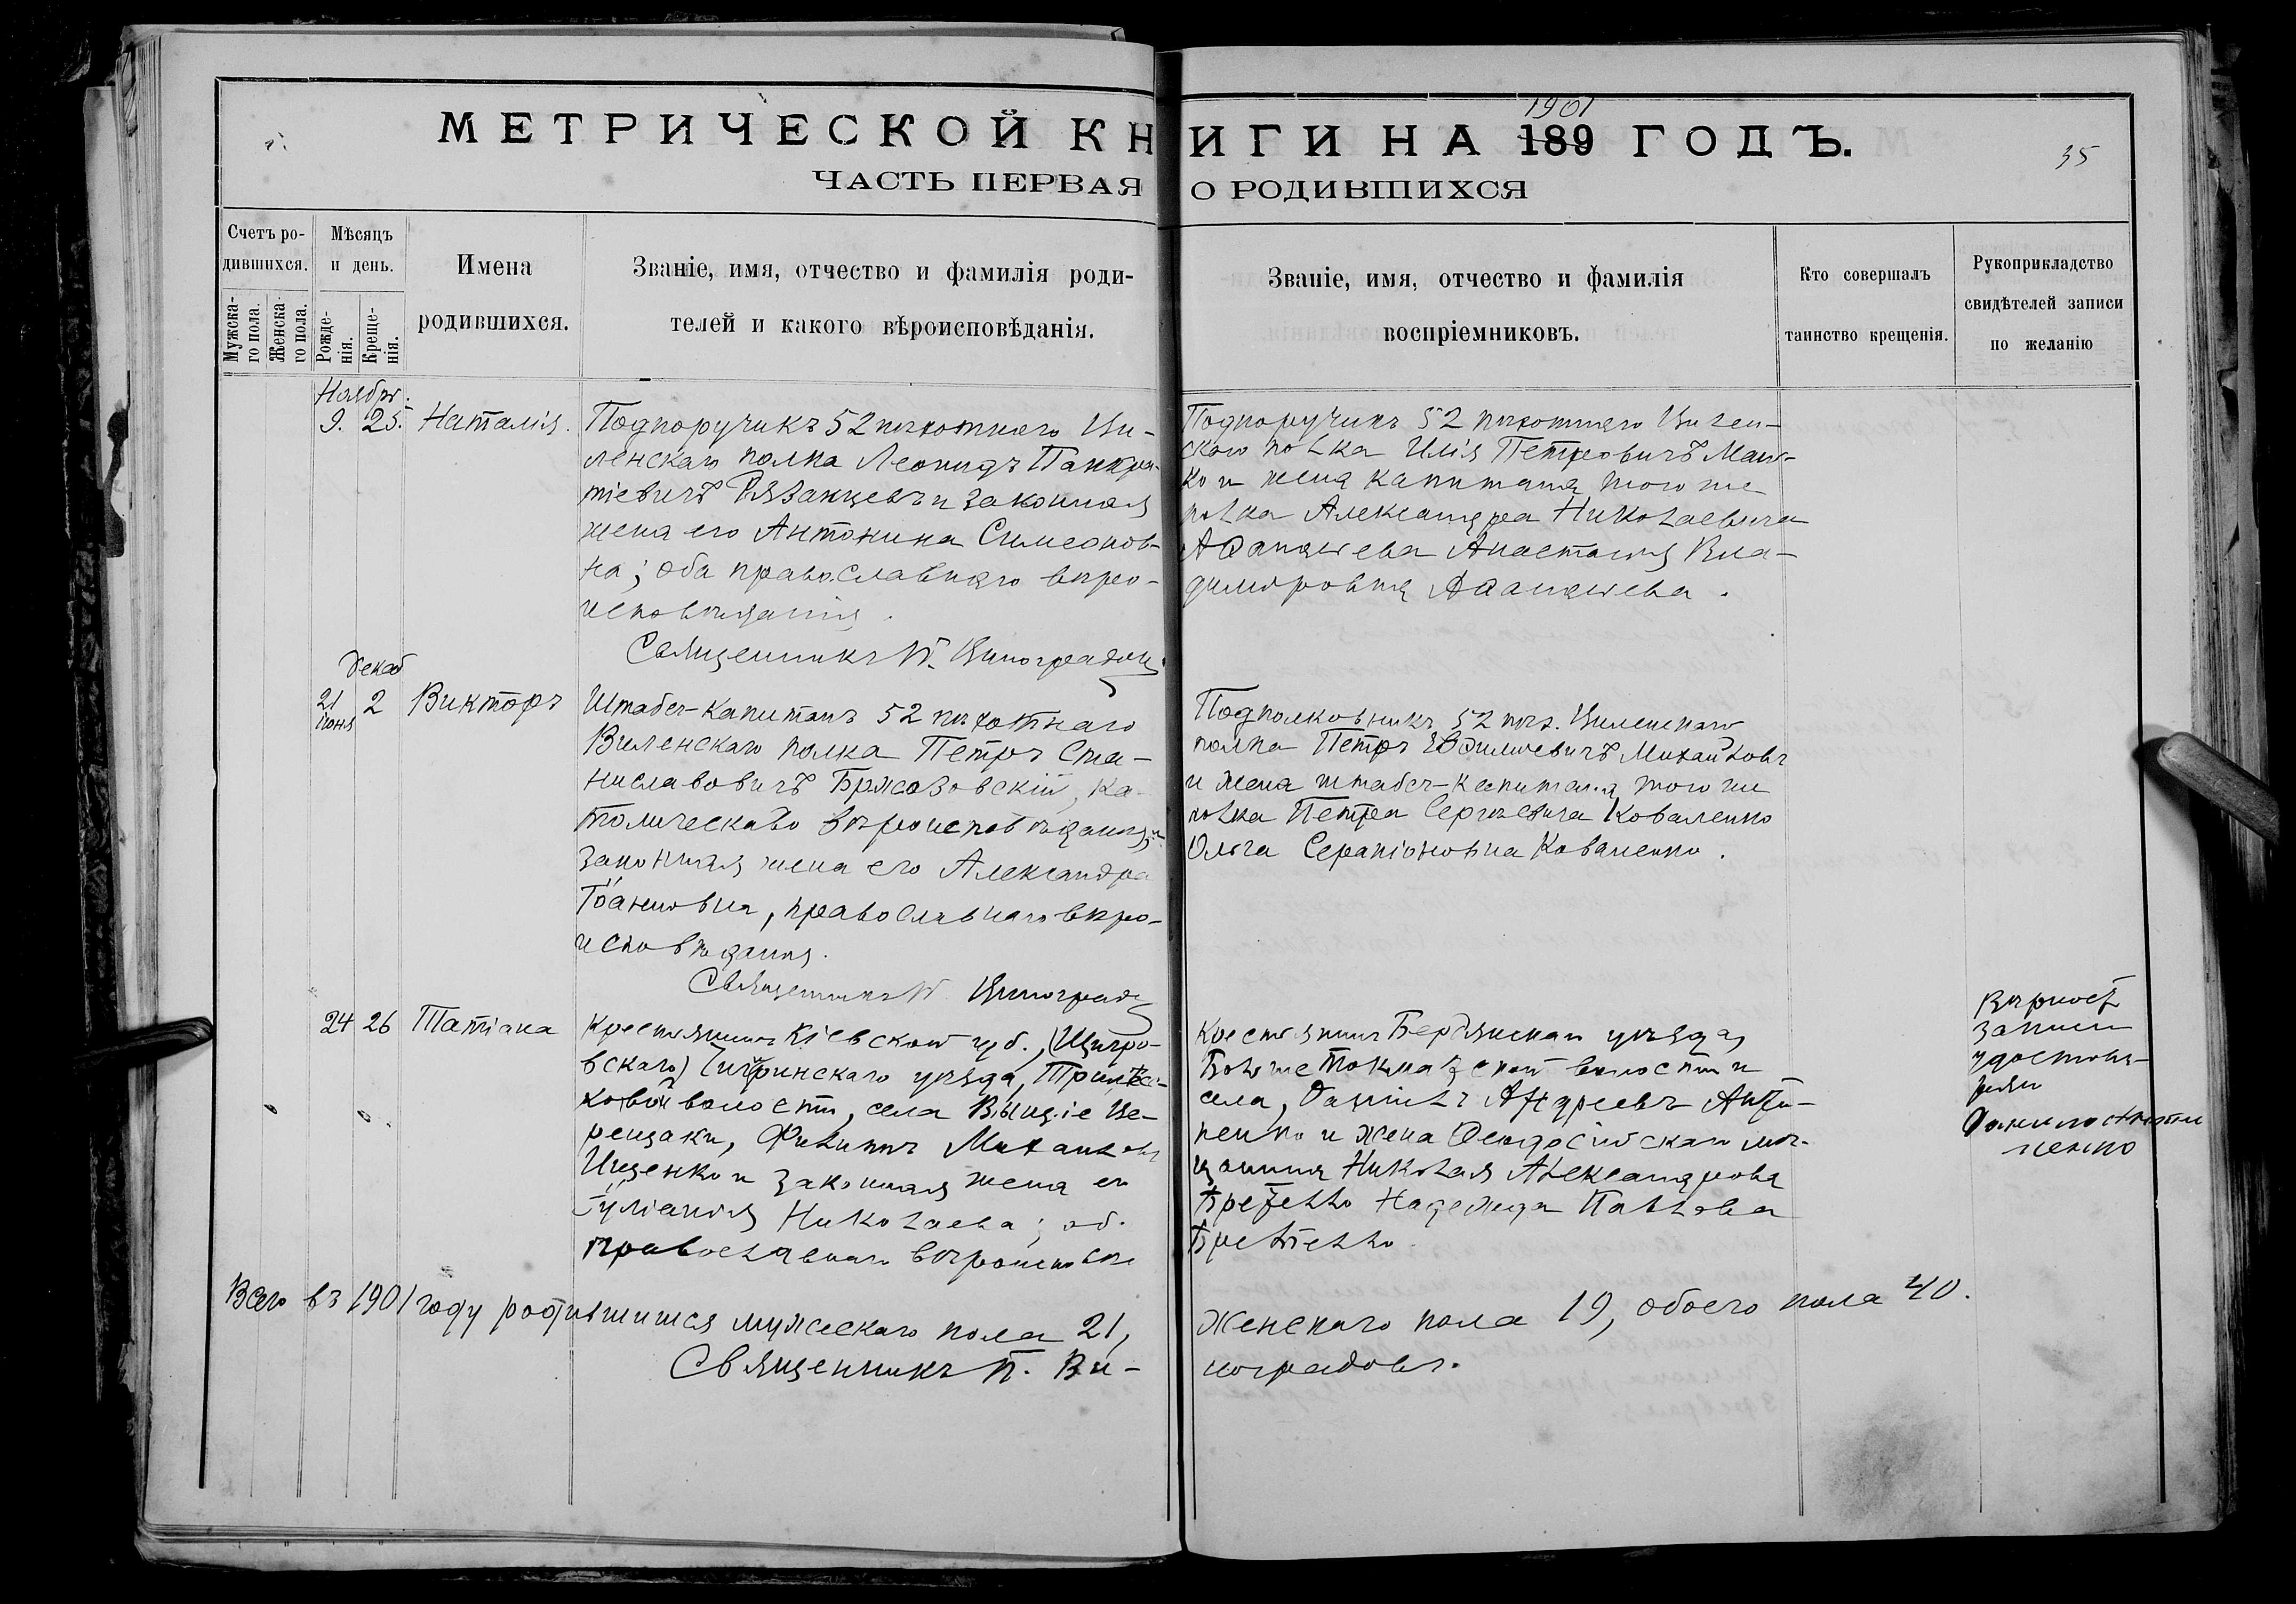 МЕТРИЧЕСКОЙ КНИГИ НА 189 ГОДЪ.
1901
35
ЧАСТЬ ПЕРВАЯ О РОДИВШИХСЯ
Счетъ ро-
дившихся.
Мужска-
го пола.
Женска-
го пола.
Мѣсяцъ
и день.
Рожде-
нія.
Креще-
нія.
Имена
родившихся.
Званіе, имя, отчество и фамилія роди-
телей и какого вѣроисповѣданія.
Званіе, имя, отчество и фамилія
воспріемниковъ.
Кто совершалъ
таинство крещенія.
Рукоприкладство
свидѣтелей записи
по желанію
Ноябрь.
9. 25. Наталія.
Подпоручикъ 52 пѣхотнаго Ви-
ленскаго полка Леонидъ Панкра-
тіевичъ Рязанцевъ и законная
жена его Антонина Симеонов-
на; оба православнаго вѣро-
исповѣданія.
Священникъ П. Виноградовъ
Подпоручикъ 52 пѣхотнаго Вилен-
скаго полка Илія Петровичъ
и жена капитана того же
полка Александра Николаевича
Анастасія Вла-
димировна
Декаб
21 2 Викторъ
іюня
Штабсъ-капитанъ 52 пѣхотнаго
Виленскаго полка Петръ Ста-
ниславовичъ Бржозовскій, ка-
толическаго вѣроисповѣданія, и
законная жена его Александра
Іоанновна, православнаго вѣро-
исповѣданія.
Священникъ П. Виноградовъ
Подполковникъ 52 пѣх. Виленскаго
полка Петръ Михайловъ
и жена штабсъ-капитана того же
полка Петра Сергѣевича Коваленко
Ольга Серапіоновна Коваленко.
24 26 Татіана
Крестьянинъ Кіевской губ., (Щигро-
вскаго) Чигиринскаго уѣзда,
волости, села Вышніе Ве-
рещаки, Филиппъ Михайловъ
Ищенко и законная жена его
Іуліанія Николаева; об.
православнаго вѣроисповѣд
Крестьянинъ Бердянскаго уѣзда,
Больше Токмакской волости и
села, Даніилъ Андреевъ Анти-
пенко и жена Ѳеодосійскаго мѣ-
щанина Николая Александрова
Надежда Павлова
Вѣрность
записи
удостовѣ-
ряю
Данило Анти
пенко
Всего въ 1901 году родившихся мужескаго пола 21, женскаго пола 19, обоего пола 40.
Священникъ П. Ви-
ноградовъ.